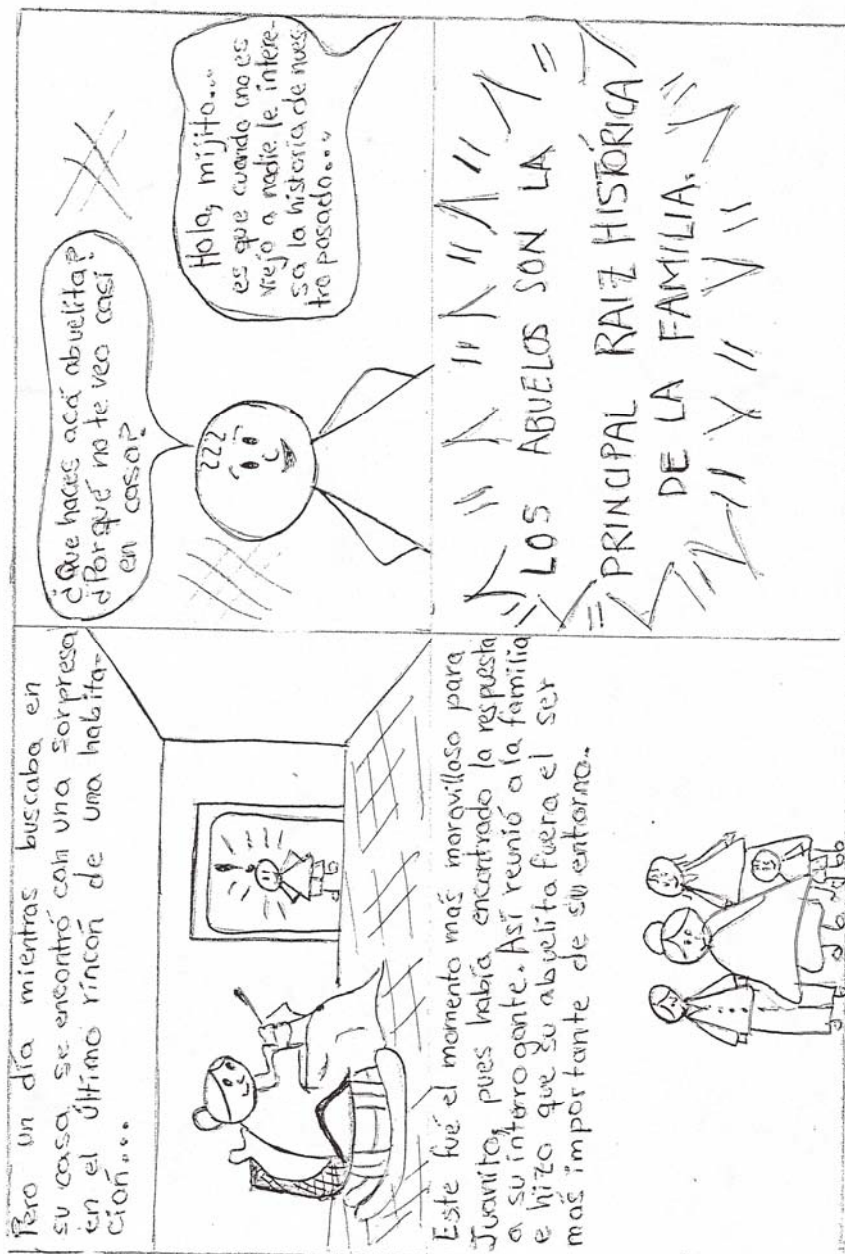 Pero un día mientras buscaba en
su casa, se encontró con una sorpresa
en el último rincón de una habita-
ción...
¿Que haces acá abuelita?
¿Porqué no te veo casi
en casa?
Hola, mijito...
es que cuando uno es
viejo a nadie le intere-
sa la historia de nues
tro pasado...
Este fué el momento más maravilloso para
Juanito, pues había encontrado la respuesta
a su interrogante. Así reunió a la familia
e hizo que su abuelita fuera el ser
más importante de su entorno.
LOS ABUELOS SON LA
PRINCIPAL RAIZ HISTÓRICA
DE LA FAMILIA.